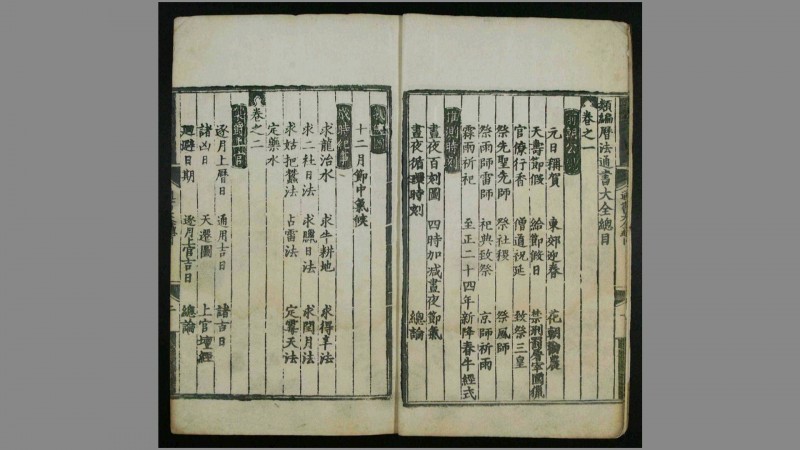 類編曆法通書大全總目
卷之一
元日稱賀 東郊迎春 花朝勸農
天壽節假 給節假日 禁刑
官僚行香 僧道祝延 致祭三皇
祭先聖先師 祭社稷 祭風師
祭雨師雷師 祀典致祭 京師祈雨
霖雨祈祀 至正二十四年新降春牛經式
晝夜百刻圖 四時加減晝夜節氣
晝夜循環時刻 總論
十二月節中氣候
歲時紀事
求龍治水 求牛耕地 求得辛法
求二社日法 求臘日法 求閏月法
求姑把蠶法 占雷法 定霉天法
定藥水
卷之二
逐月上曆日 通用吉日 諸吉日
諸凶日 天遷圖 上官壇經
迴避日期 逐月上官吉日 總論